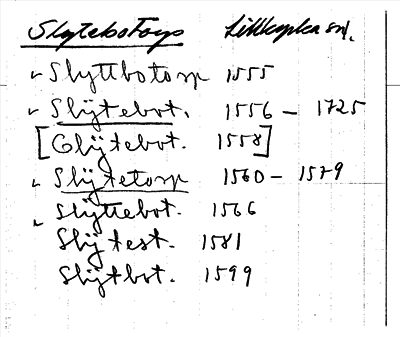 Slytebotorp Lillkyrka sn.
Slyttbotorp 1555
Slÿtebot. 1556 – 1725
[Glÿtebot. 1558]
Slÿtetorp 1560 – 1579
Slÿttebot. 1566
Slÿtest. 1581
Slÿtbot. 1599